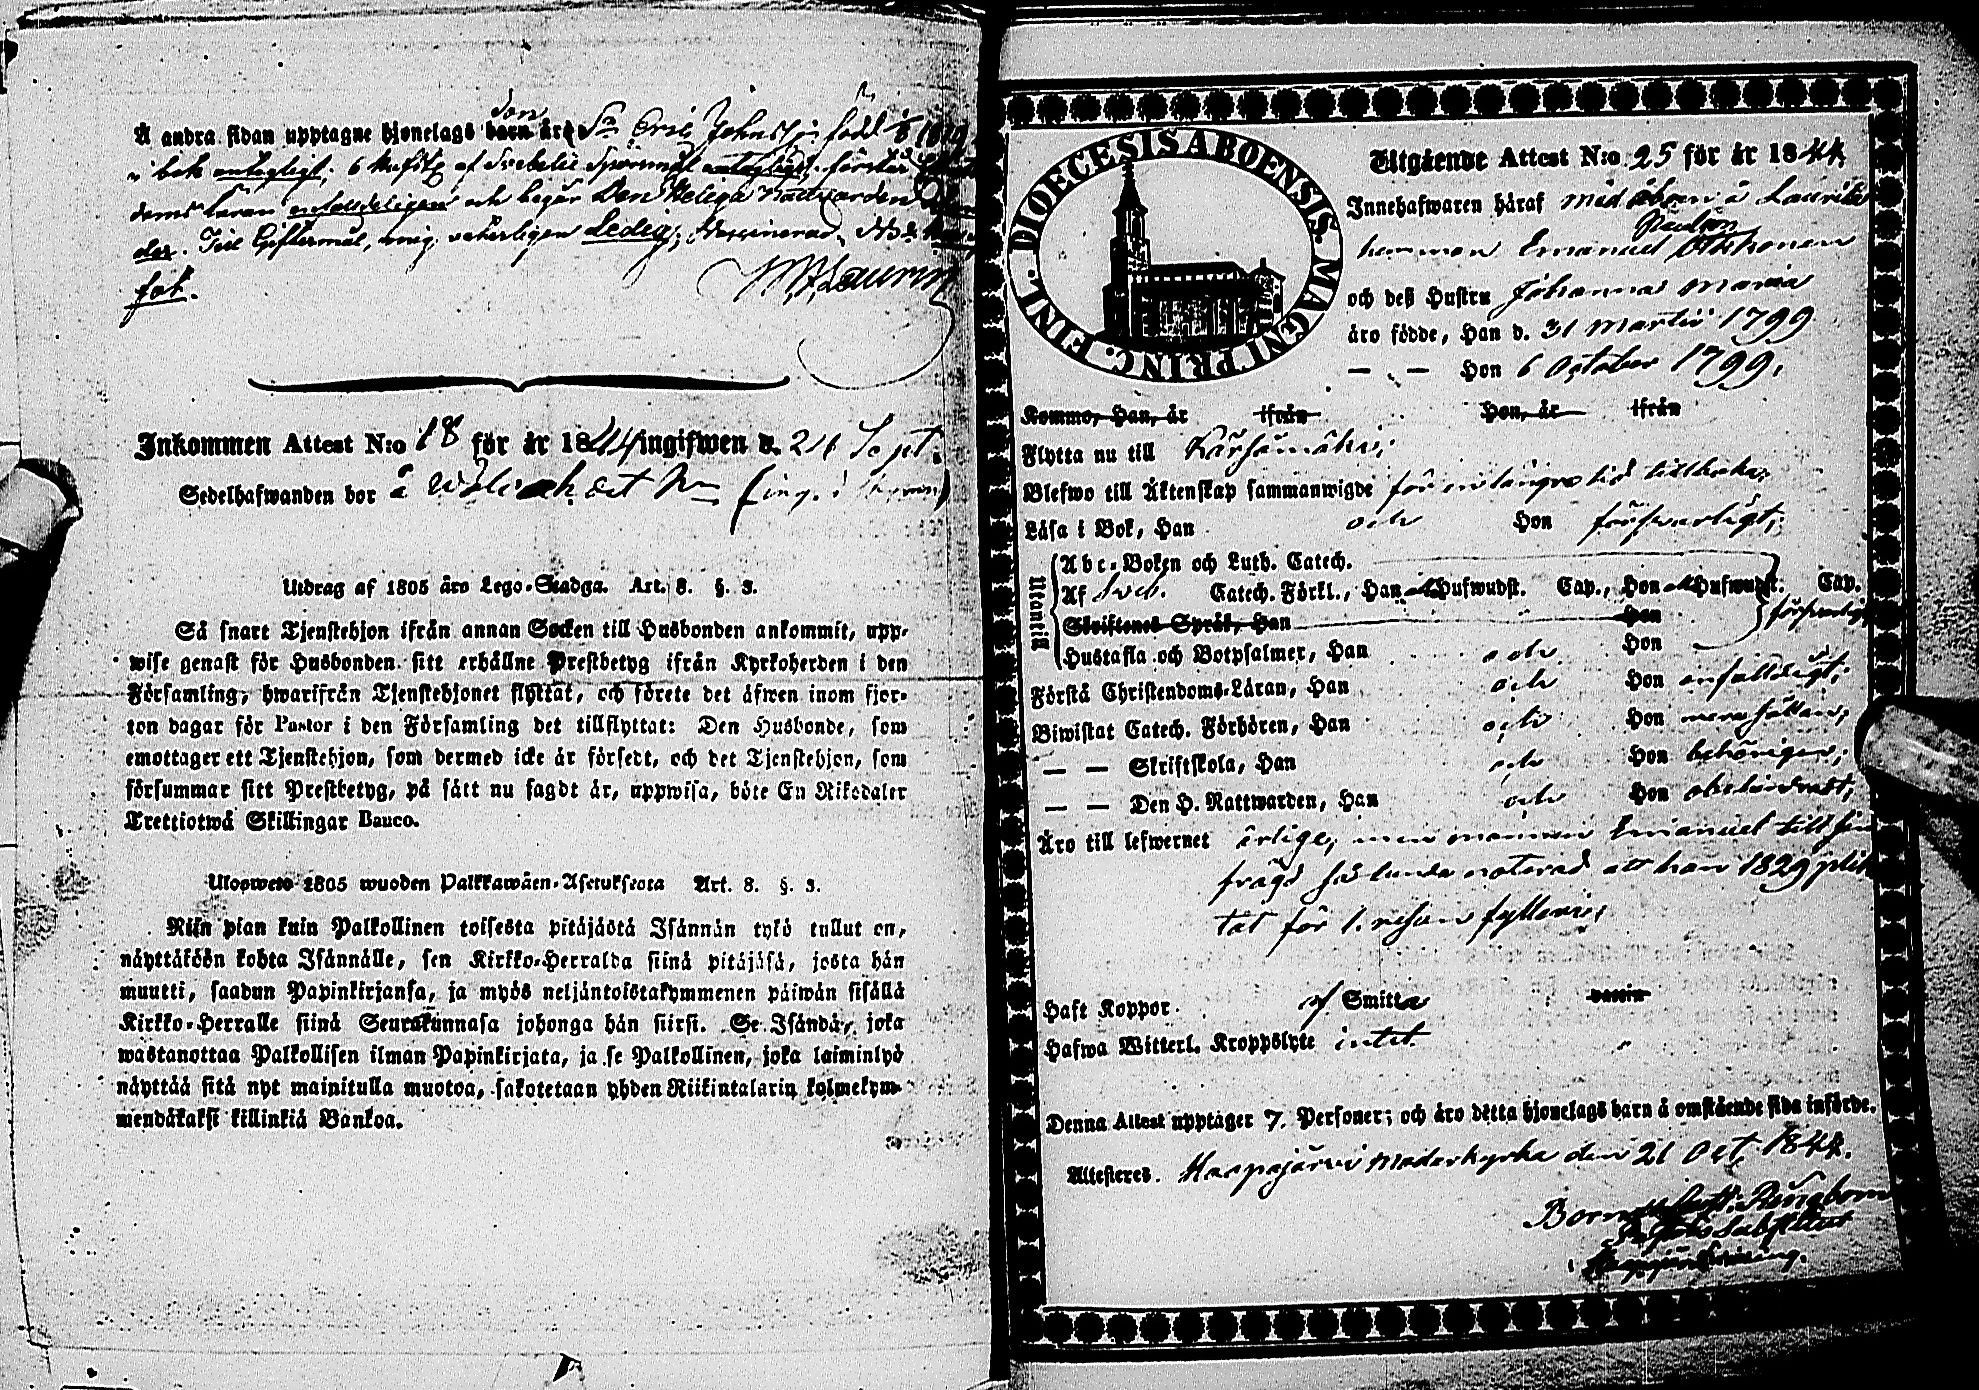 son
Å andra sidan upptagne hjonelags barn äro Eric Johansson född 1819
i bok antagligt; 6 Hufstyc. af Svebelii Spörsmål antagligt, förstår
doms Läran enfaldeligen och begår Den Heliga Nattvarden
der. Till Giftermål, mig veterligen Ledig; Vaccinerad.
fot.
Inkommen Attest N:o 18 för år 1844 ingifwen d. 24 Sept.
Sedelhafwanden bor å
Utdrag af 1805 års Lego-Stadga. Art. 8. §. 3.
Så snart Tjenstehjon ifrån annan Socken till Husbonden ankommit, upp-
wise genast för Husbonden sitt erhållne Prestbetyg ifrån Kyrkoherden i den
Församling, hwarifrån Tjenstehjonet flyttat, och förete det äfwen inom fjor-
ton dagar för Pastor i den Församling det tillflyttat: Den Husbonde, som
emottager ett Tjenstehjon, som dermed icke är försedt, och det Tjenstehjon, som
försummar sitt Prestbetyg, på sätt nu sagdt är, uppwisa, böte En Riksdaler
Trettiotwå Skillingar Banco.
Ulosweto 1805 wuoden Palkkawäen-Asetuksesta Art. 8. §. 3.
Niin pian kuin Palkollinen toisesta pitäjästä Isännän tykö tullut on,
näyttäköön kohta Isännälle, sen Kirkko-Herralda siinä pitäjäsä, josta hän
muutti, saadun Papinkirjansa, ja myös neljäntoistakymmenen päiwän sisällä
Kirkko-Herralle siinä Seurakunnasa johonga hän siirsi. Se Isändä, joka
wastanottaa Palkollisen ilman Papinkirjata, ja se Palkollinen, joka laiminlyö
näyttää sitä nyt mainitulla muotoa, sakotetaan yhden Riikintalarin kolmekym-
mendäkaksi killinkiä Bankoa.
FINL. DIOECESIS ABOENSIS. MAGNI PRINC.
Utgående Attest N:o 25 för år 1844
Innehafwaren häraf Mid åboen å Lauritti
hemman Emanuel
och deß Hustru Johanna Maria
äro födde, Han d. 31 Martii 1799
— . — Hon 6 October 1799.
Kommo, Han, år ifrån Hon, år ifrån
Flytta nu till Kärsämäki;
Blefwo till Äktenskap sammanwigde för en längre tid tillbaka;
Läsa i Bok, Han och Hon försvarligt;
Utantill
Abc-Boken och Luth. Catech.
Af Sveb. Catech. Förkl., Han Hufwudst. Cap., Hon Hufwudst. Cap.
Skriftenes Språk, Han Hon försvarligt
Hustafla och Botpsalmer, Han och Hon
Förstå Christendoms-Läran, Han och Hon enfaldigt;
Biwistat Catech. Förhören, Han och Hon mera sällan;
— — Skriftskola, Han och Hon behörigen;
— — Den H. Nattwarden, Han och Hon obehindradt;
Äro till lefwernet ärlige, men mannen Emanuel till sin
frägd sålunda noterad att han 1829 plik
tat för 1. resan fylleri;
Haft Koppor af Smitta vaccin
Hafwa Witterl. Kroppslyte intet
Denna Attest upptager 7. Personer; och äro detta hjonelags barn å omstående sida införde.
Attesteres. Haapajärvi Moderkyrka den 21 Oct. 1844.